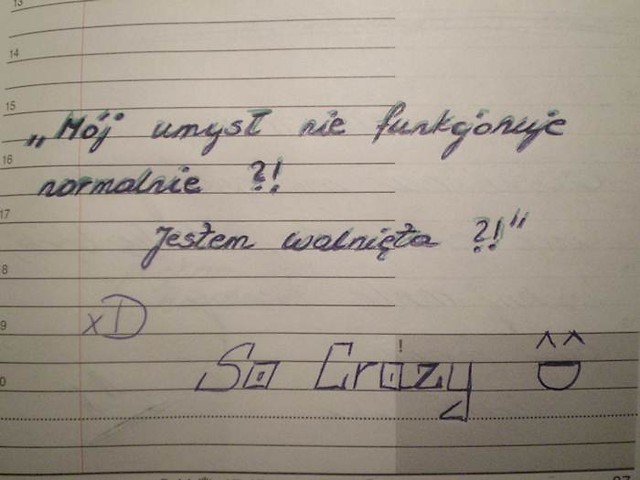 13
14
15
„Mój umysł nie funkcjonuje
16
normalnie ?!
17
Jestem walnięta ?!"
8
9
xD
!
0
So Crazy ^^